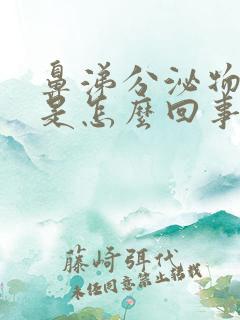 鼻涕分泌物
是怎麼回事
藤崎弭代
未经同意禁止转载